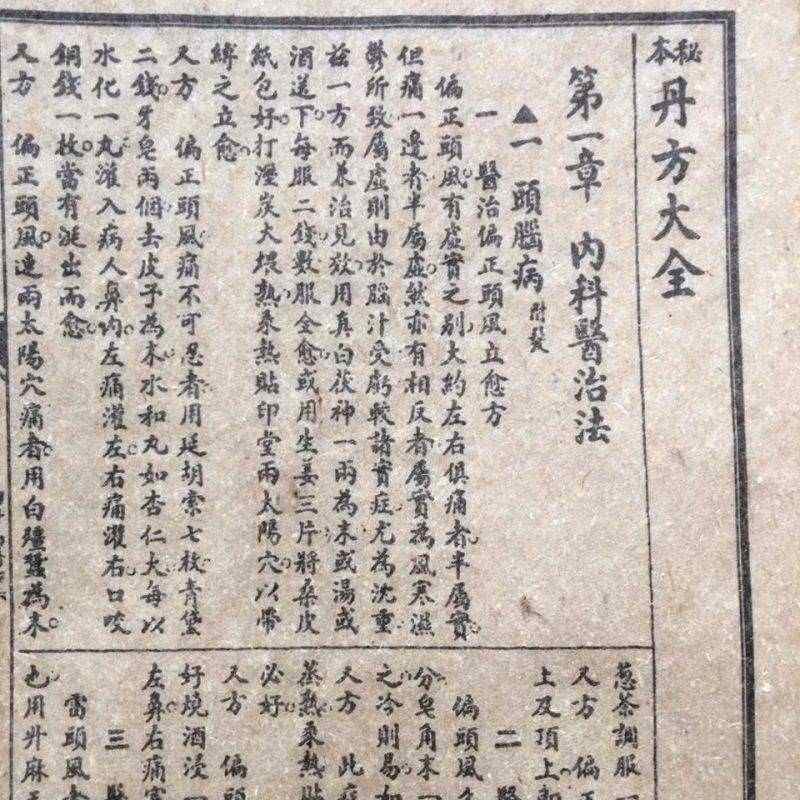 秘本 丹方大全
第一章 內科醫治法
▲一 頭腦病 附髮
一 醫治偏正頭風立愈方
偏正頭風有虛實之别大約左右俱痛者半屬實
但痛一邊者半屬虛然亦有相反者屬實為風寒濕
鬱所致屬虛則由於腦汁受虧較諸實症尤為沈重
茲一方而兼治見效用真白茯神一兩為末或湯或
酒送下每服二錢數服全愈或用生姜三片將桑皮
紙包好打溼炭火煨熱乘熱貼印堂兩太陽穴以帶
縛之立愈
又方 偏正頭風痛不可忍者用延胡索七枚青黛
二錢牙皂兩個去皮子為末水和丸如杏仁大每以
水化一丸灌入病人鼻內左痛灌左右痛灌右口咬
銅錢一枚當有涎出而愈
又方 偏正頭風連兩太陽穴痛者用白殭蠶為末
葱茶調服一
又方 偏正
上及頂上
二 醫
偏頭風
分皂角末一
之冷則易如
又方 此症
蒸熱乘熱貼
必好
又方 偏頭
好燒酒浸一
左鼻右痛塞
三 醫
雷頭風
也用升麻五